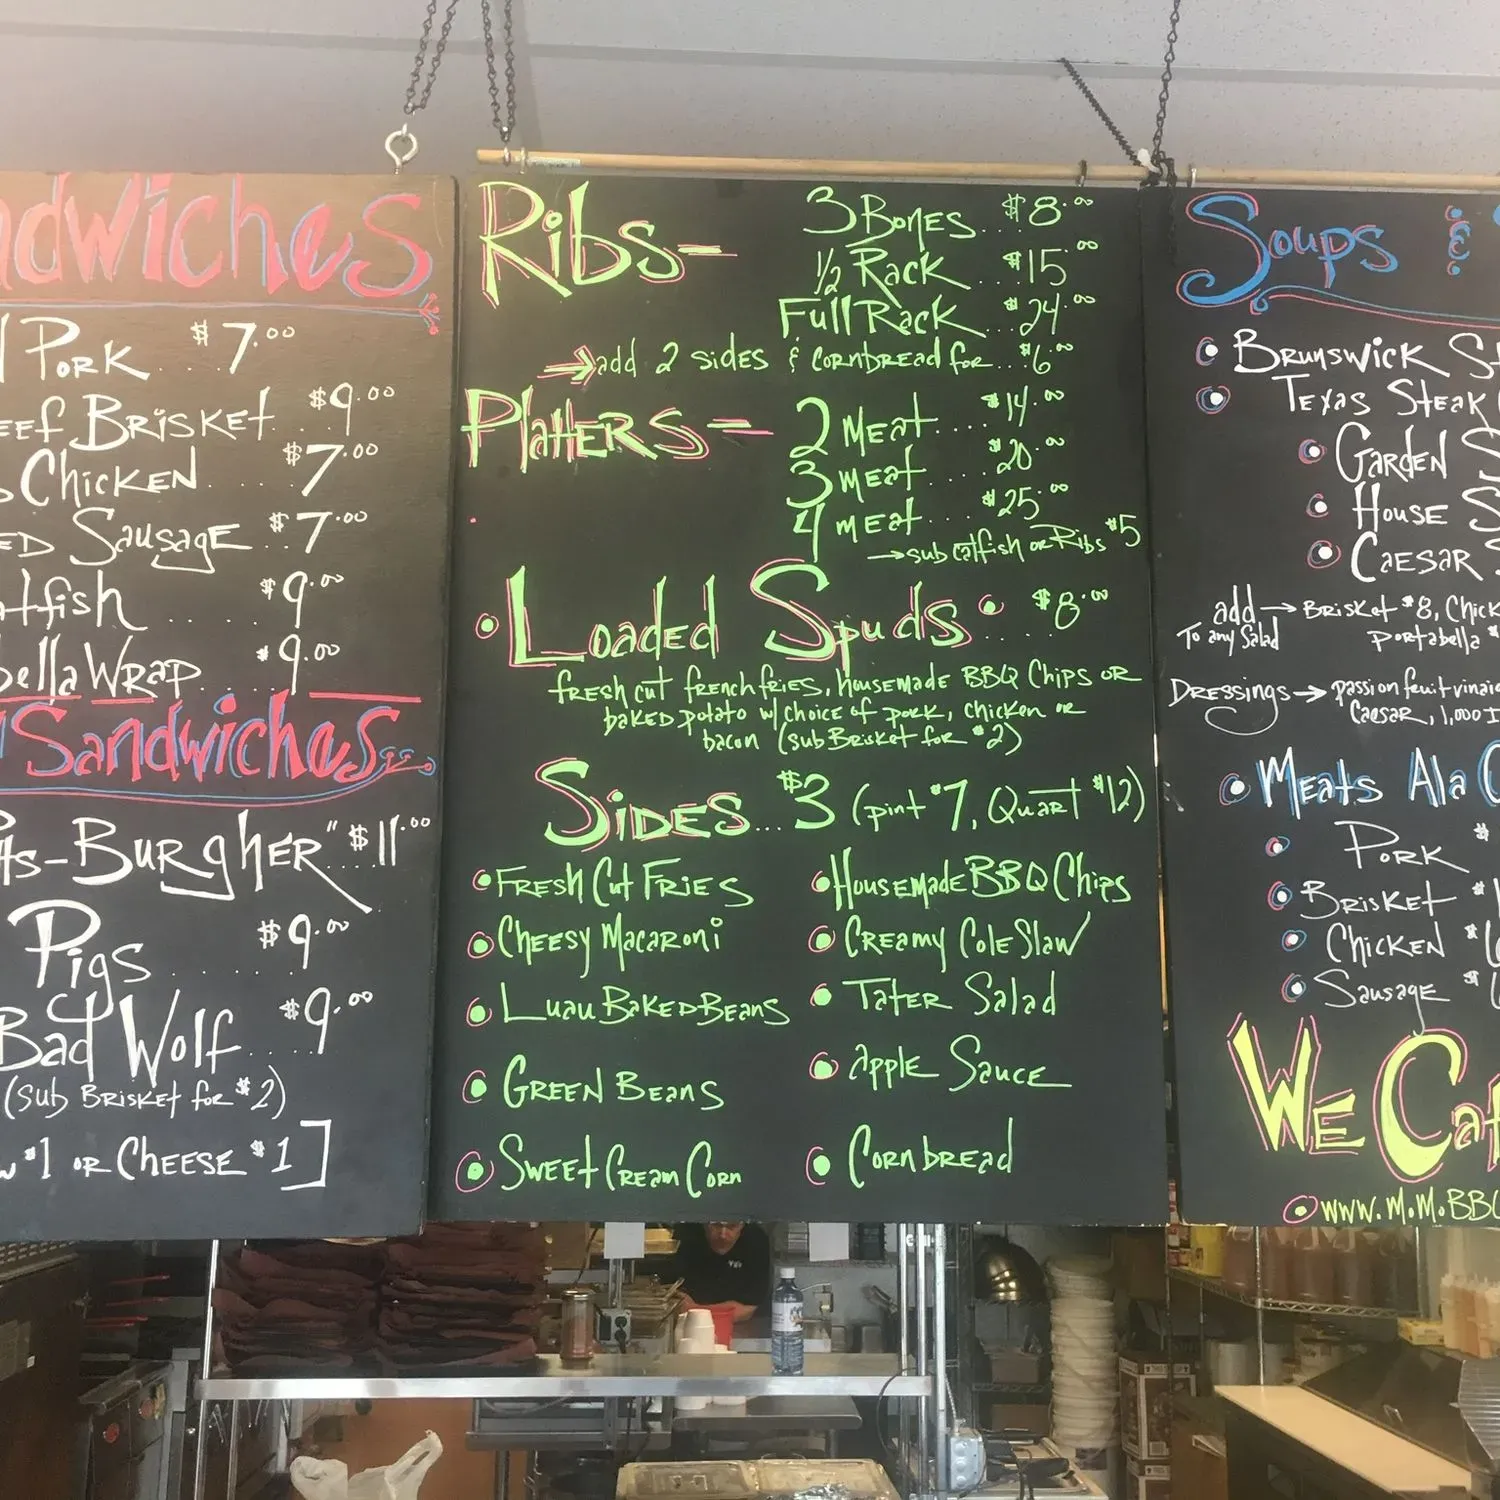 Pork .... $7.00
Brisket $9.00
Chicken .... $7.00
Sausage .. $7.00
$9.00
Wrap .... $9.00
Sandwiches
Burgher" $11.00
Pigs ...... $9.00
Bad Wolf .... $9.00
(sub Brisket for $2)
$1 or Cheese $1]
Ribs - 3 Bones .. $8.00
1/2 Rack ... $15.00
Full Rack ... $24.00
add 2 sides & cornbread for ... $6.00
Platters - 2 meat .... $14.00
3 meat .... $20.00
4 meat .... $25.00
→ sub catfish or Ribs $5
Loaded Spuds .... $8.00
fresh cut french fries, housemade BBQ Chips or
baked potato w/ choice of pork, chicken or
bacon (sub Brisket for $2)
Sides ... $3 (pint $7, Quart $12)
Fresh Cut Fries
Housemade BBQ Chips
Cheesy Macaroni
Creamy Cole Slaw
Luau Baked Beans
Tater Salad
Green Beans
Apple Sauce
Sweet Cream Corn
Cornbread
Soups &
Brunswick
Texas Steak
Garden
House
Caesar
add → Brisket $8,
To any Salad
Portabella
Dressings → passion fruit
Caesar, 1,000
Meats Ala
Pork
Brisket
Chicken
Sausage
We
www.M.M.BBQ